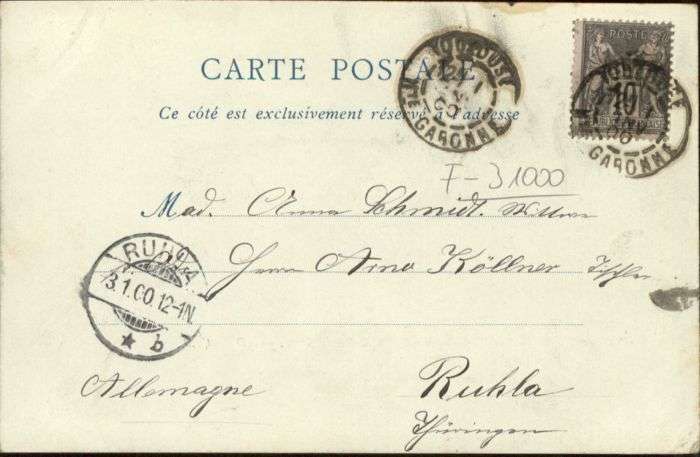 CARTE POSTALE
Ce côté est exclusivement réservé à l'adresse
TOULOUSE
GARONNE
TOULOUSE
10
GARONNE
F-31000
Mad. Anna Schmidt.
Herrn Arno Köllner
RUHLA
3.1.00.12-1N.
★ b
Allemagne
Ruhla
Thüringen